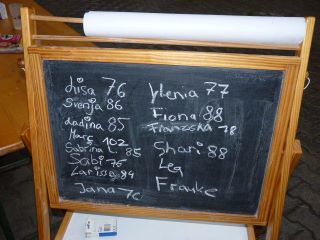 Luisa 76
Svenja 86
Ladina 85
Marc 102
Sabrina L. 85
Sabi 76
Larissa 84
Jana 76
Ylenia 77
Fiona 88
Franziska 78
Shari 88
Lea
Frauke